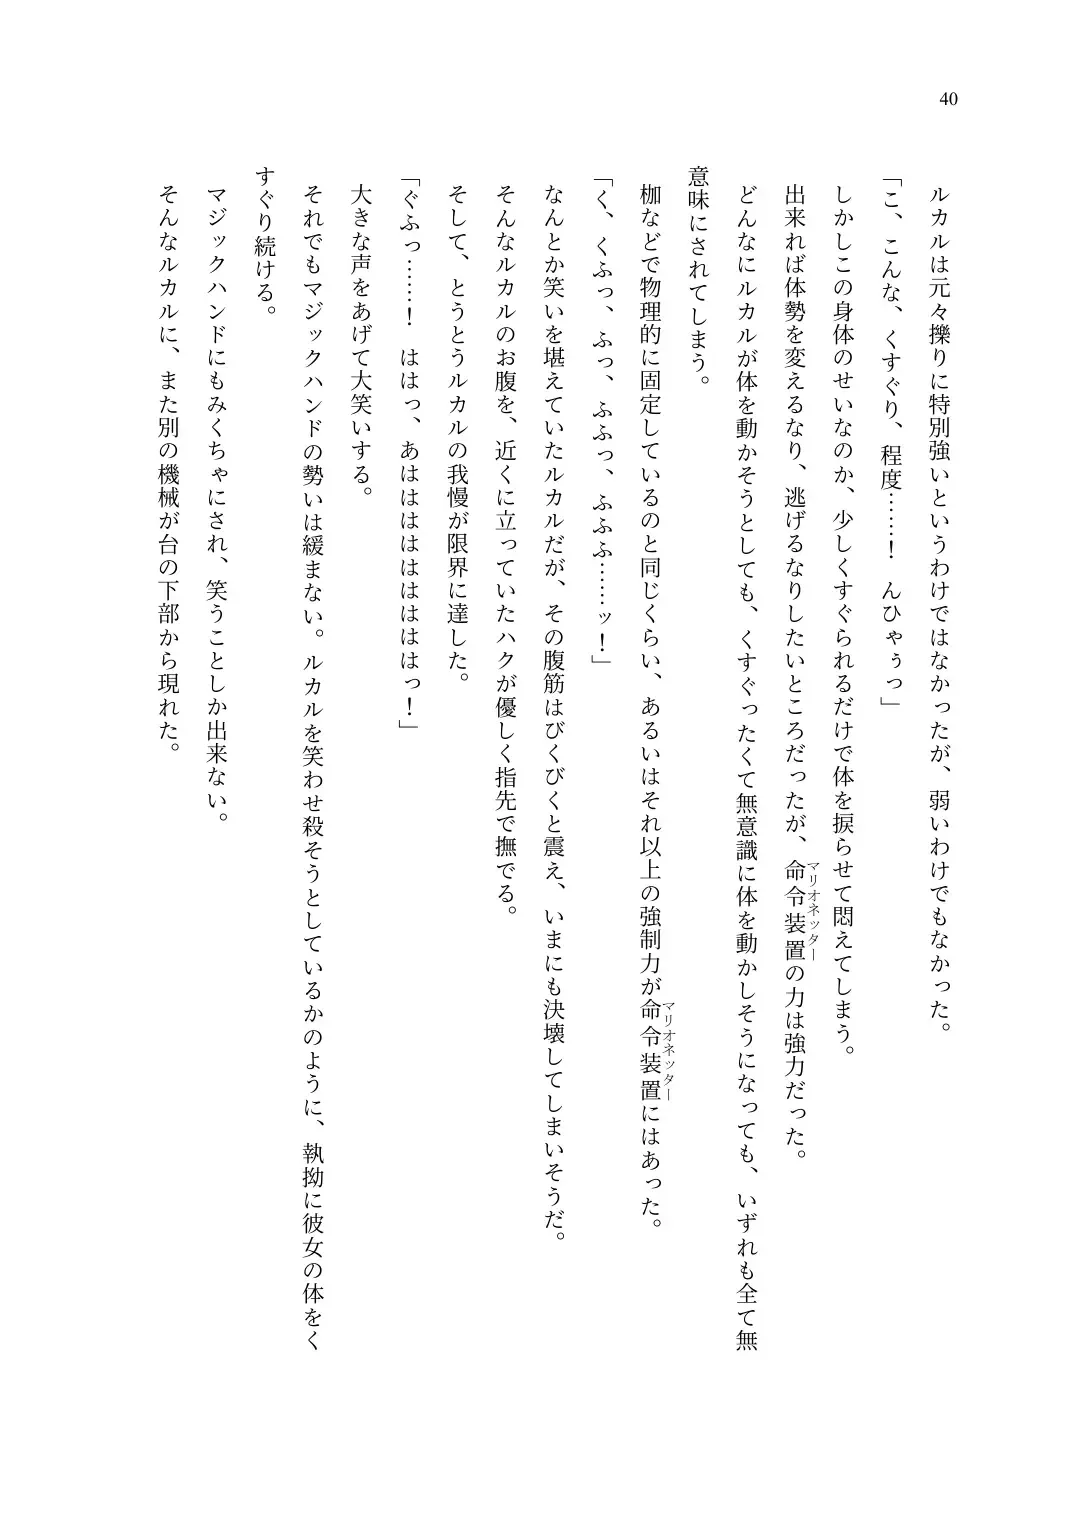 40
ルカルは元々擽りに特別強いというわけではなかったが、弱いわけでもなかった。
「こ、こんな、くすぐり、程度……！　んひゃぅっ」
しかしこの身体のせいなのか、少しくすぐられるだけで体を捩らせて悶えてしまう。
出来れば体勢を変えるなり、逃げるなりしたいところだったが、命令装置の力は強力だった。
マリオネッター
どんなにルカルが体を動かそうとしても、くすぐったくて無意識に体を動かしそうになっても、いずれも全て無
意味にされてしまう。
枷などで物理的に固定しているのと同じくらい、あるいはそれ以上の強制力が命令装置にはあった。
マリオネッター
「く、くふっ、ふっ、ふふっ、ふふふ……ッ！」
なんとか笑いを堪えていたルカルだが、その腹筋はびくびくと震え、いまにも決壊してしまいそうだ。
そんなルカルのお腹を、近くに立っていたハクが優しく指先で撫でる。
そして、とうとうルカルの我慢が限界に達した。
「ぐふっ……！　ははっ、あはははははははははっ！」
大きな声をあげて大笑いする。
それでもマジックハンドの勢いは緩まない。ルカルを笑わせ殺そうとしているかのように、執拗に彼女の体をく
すぐり続ける。
マジックハンドにもみくちゃにされ、笑うことしか出来ない。
そんなルカルに、また別の機械が台の下部から現れた。